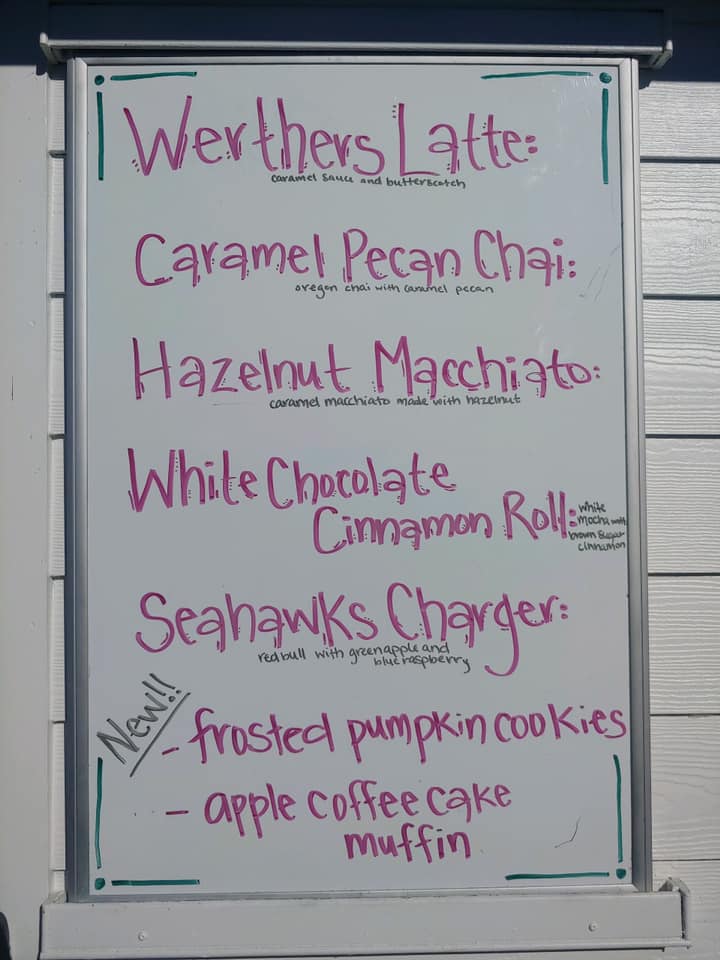 Werthers Latte:
caramel sauce and butterscotch
Caramel Pecan Chai:
oregon chai with caramel pecan
Hazelnut Macchiato:
caramel macchiato made with hazelnut
White Chocolate
Cinnamon Roll:
white
mocha with
brown sugar
cinnamon
Seahawks Charger:
redbull with green apple and
blue raspberry
New!!
- frosted pumpkin cookies
- apple coffee cake
muffin